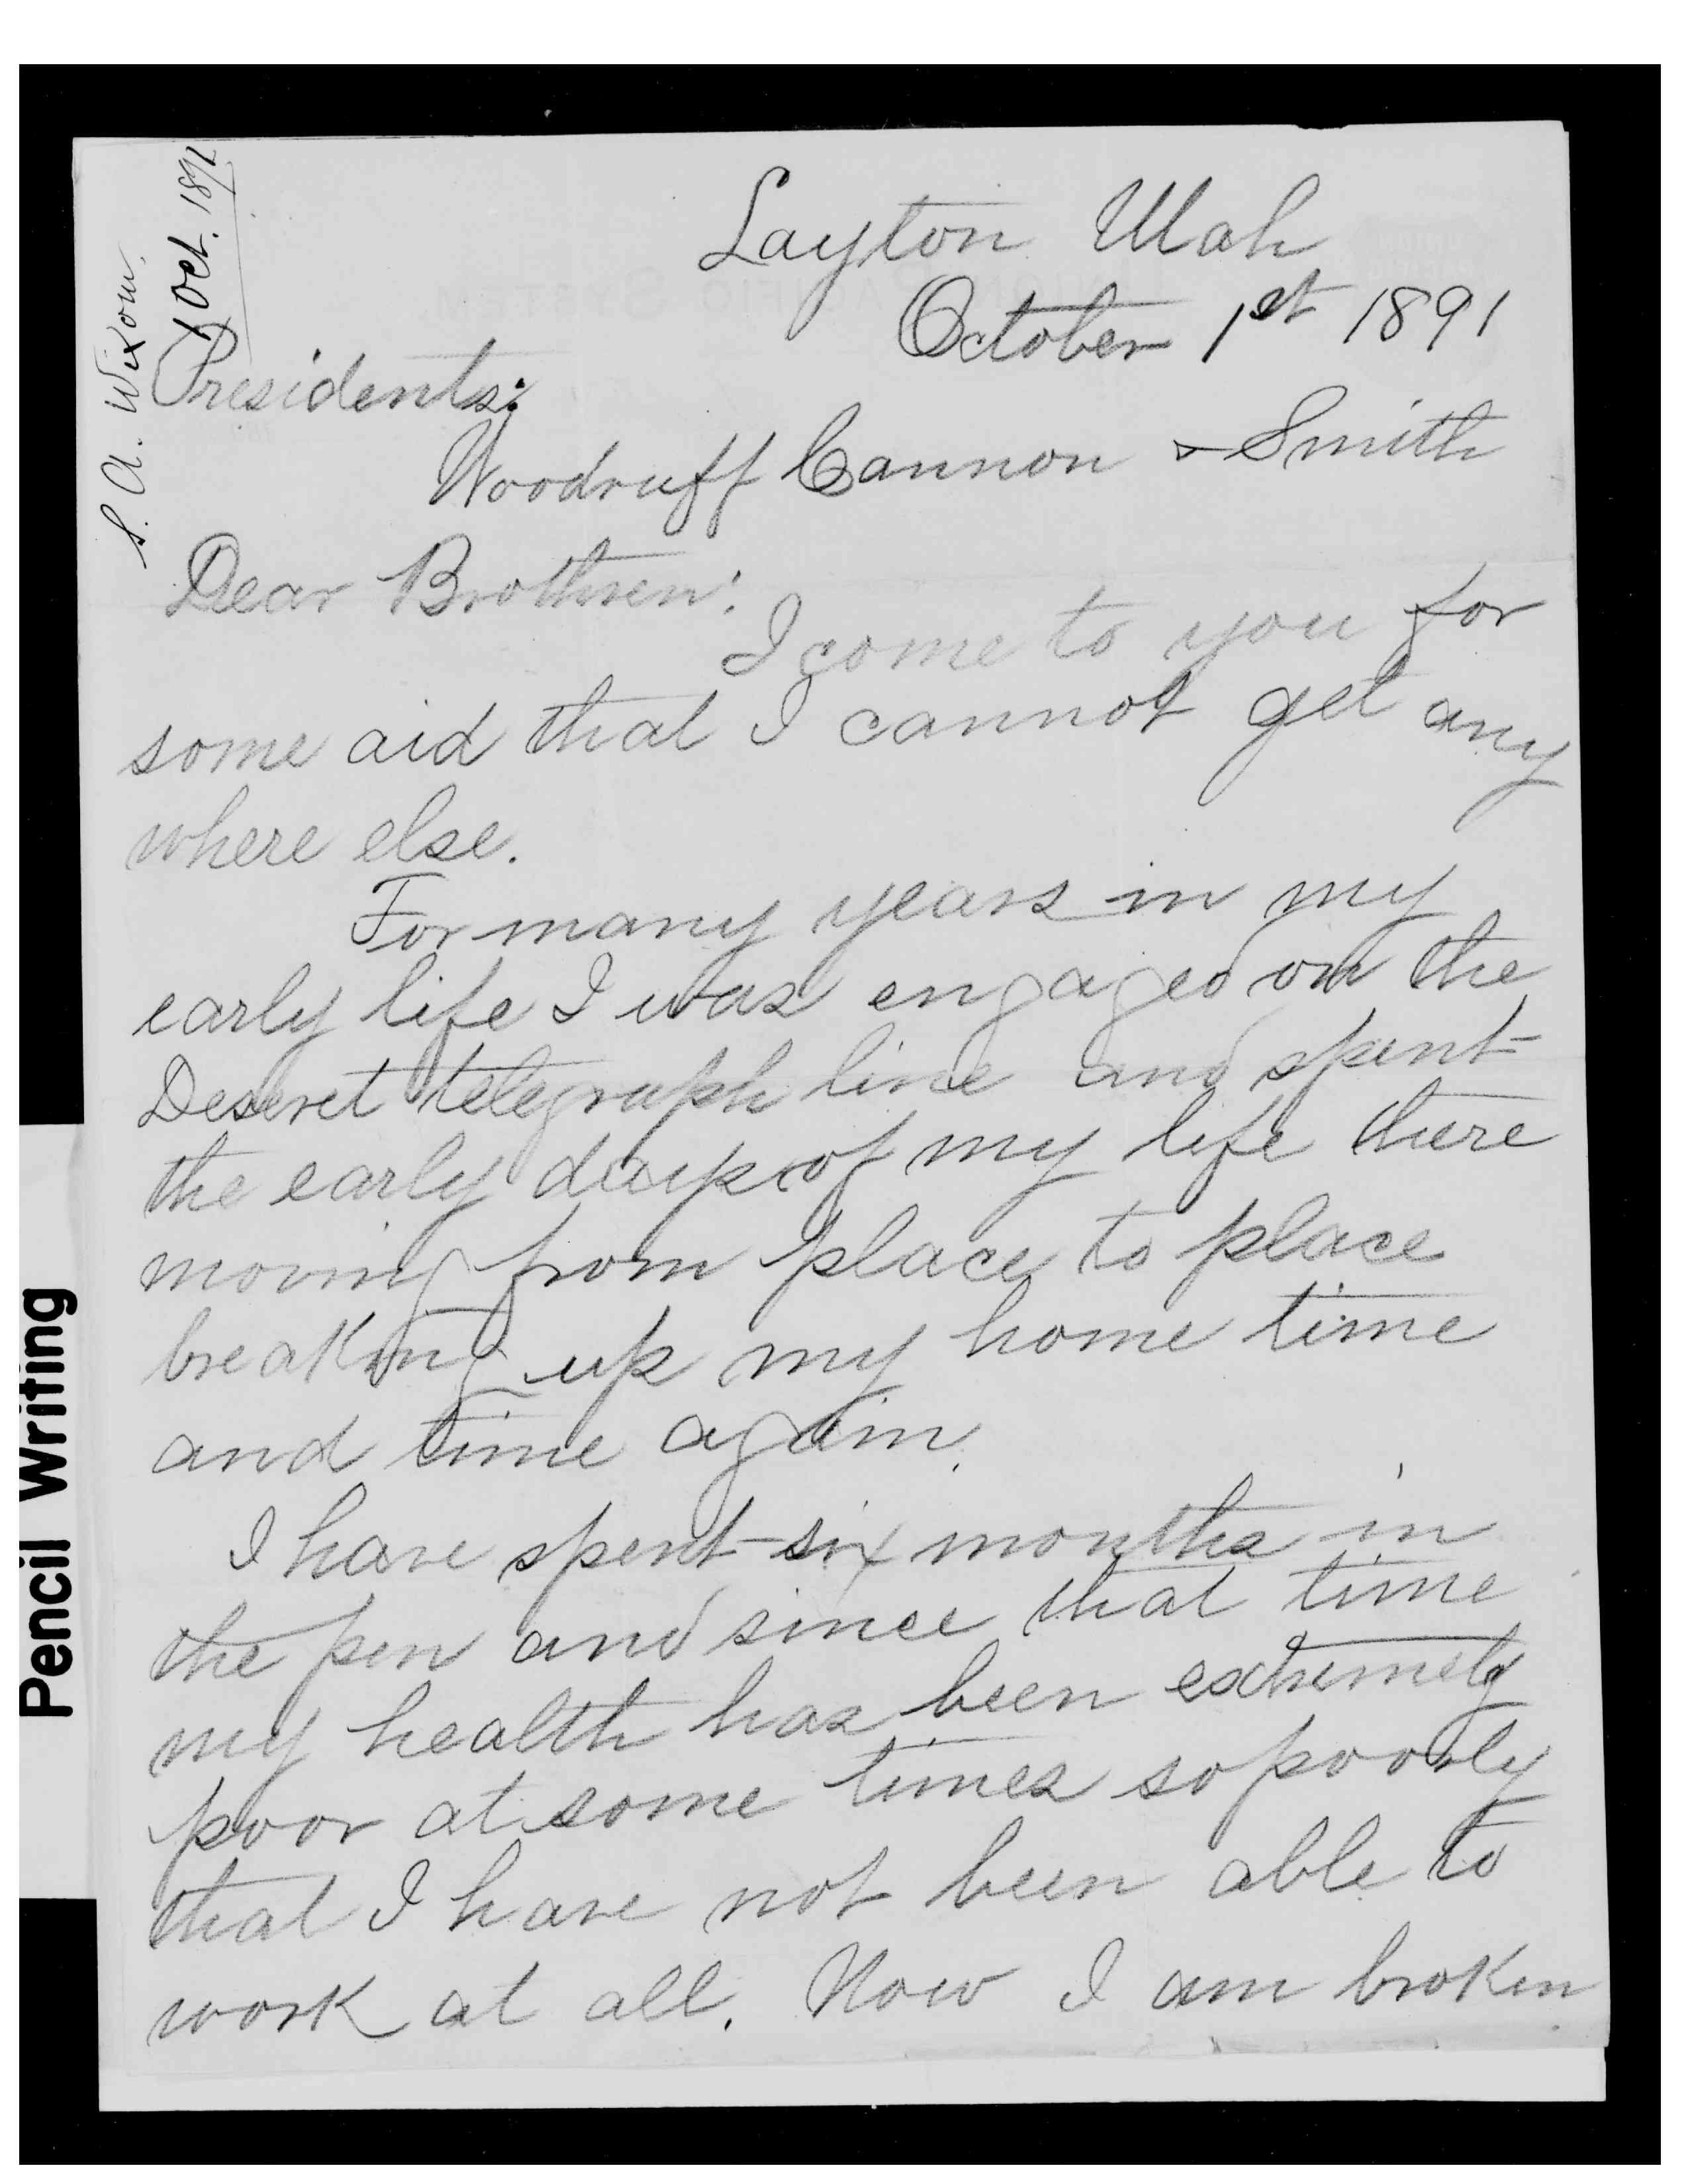 S. A. Wixom.
1 Oct. 1891
Layton Utah
October 1st 1891
Presidents:
Woodruff Cannon & Smith
Dear Brothren:
I come to you for
some aid that I cannot get any
where else.
For many years in my
early life I was engaged on the
Deseret telegraph line and spent
the early days of my life there
moving from place to place
breaking up my home time
and time again.
I have spent six months in
the pen and since that time
my health has been extremely
poor at some times so poorly
that I have not been able to
work at all. Now I am broken
Pencil Writing